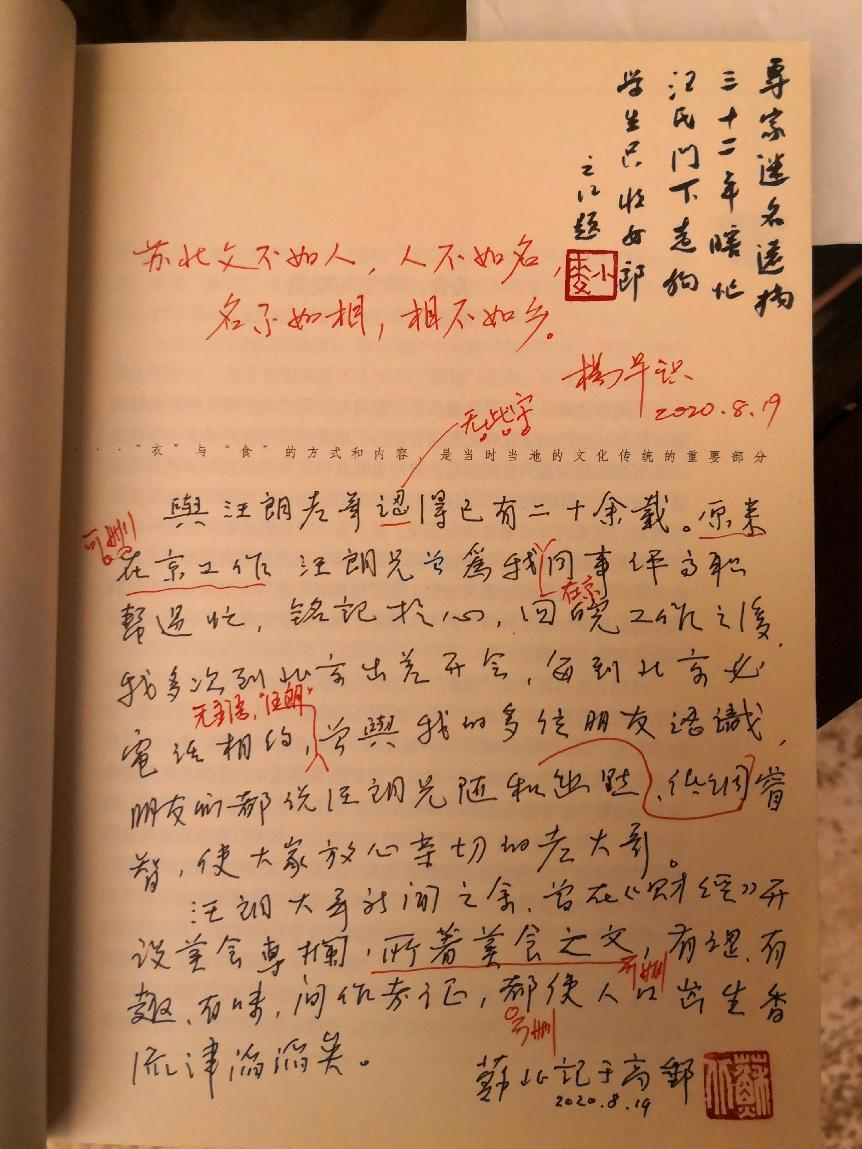 三十二年瞎忙
汪氏门下走狗
学生只收女郎
苏北文不如人，人不如名，
名不如相，相不如乡。
杨早识
2020.8.19
无此字
“衣”与“食”的方式和内容，是当时当地的文化传统的重要部分
與汪朗老哥認得已有二十余載。原来
可删
在京工作 汪朗兄曾爲我同事评高职
在京
幫過忙，銘記於心，回皖工作之後，
我多次到北京出差开会，每到北京必
无主语，“汪朗”
電话相约，曾與我的多位朋友認識，
朋友们都说汪朗兄随和幽默、低调睿
智，使大家放心亲切的老大哥。
汪朗大哥新闻之余，曾在《财经》开
设美食專欄，所著美食之文，有理、有
可删
趣、有味，间作考证，都使人口齿生香
可删
流津滔滔矣。
蘇北記于高郵
2020.8.19